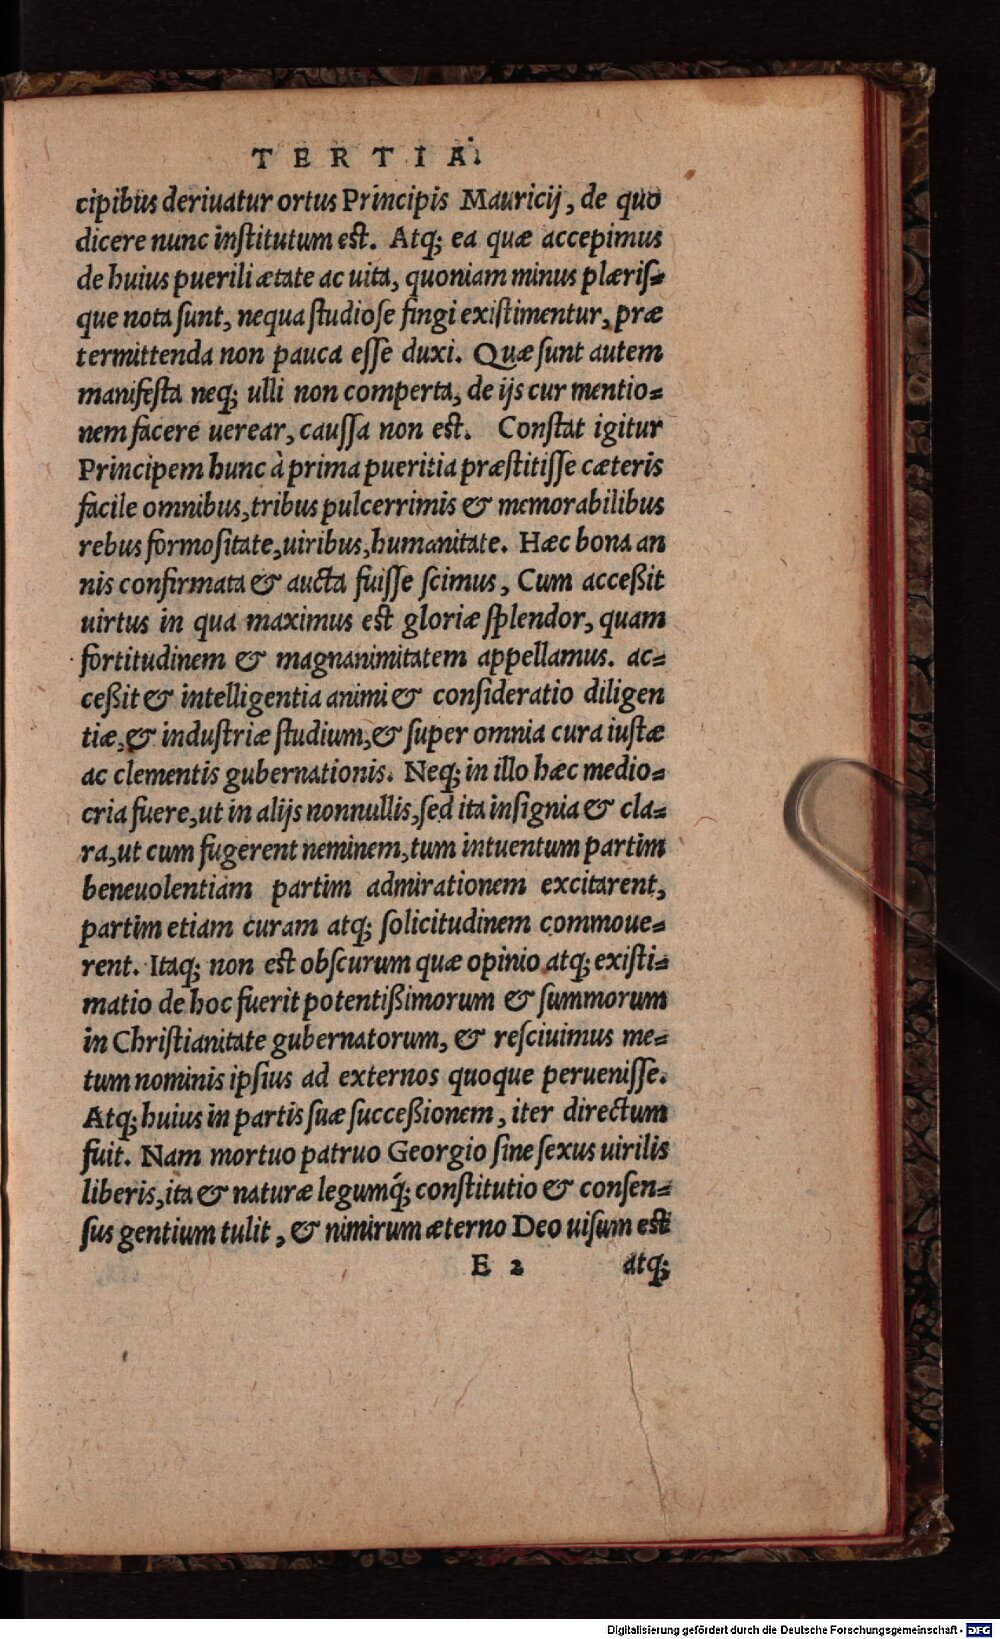 TERTIA.
cipibus deriuatur ortus Principis Mauricij, de quo
dicere nunc institutum est. Atq; ea quæ accepimus
de huius puerili ætate ac uita, quoniam minus plæris=
que nota sunt, nequa studiose fingi existimentur, præ
termittenda non pauca esse duxi. Quæ sunt autem
manifesta neq; ulli non comperta, de ijs cur mentio=
nem facere uerear, caussa non est. Constat igitur
Principem hunc à prima pueritia præstitisse cæteris
facile omnibus, tribus pulcerrimis & memorabilibus
rebus formositate, uiribus, humanitate. Hæc bona an
nis confirmata & aucta fuisse scimus, Cum acceßit
uirtus in qua maximus est gloriæ splendor, quam
fortitudinem & magnanimitatem appellamus. ac=
ceßit & intelligentia animi & consideratio diligen
tiæ, & industriæ studium, & super omnia cura iustæ
ac clementis gubernationis. Neq; in illo hæc medio=
cria fuere, ut in alijs nonnullis, sed ita insignia & cla=
ra, ut cum fugerent neminem, tum intuentum partim
beneuolentiam partim admirationem excitarent,
partim etiam curam atq; solicitudinem commoue=
rent. Itaq; non est obscurum quæ opinio atq; existi=
matio de hoc fuerit potentißimorum & summorum
in Christianitate gubernatorum, & resciuimus me=
tum nominis ipsius ad externos quoque peruenisse.
Atq; huius in partis suæ succeßionem, iter directum
fuit. Nam mortuo patruo Georgio sine sexus uirilis
liberis, ita & naturæ legumq́; constitutio & consen=
sus gentium tulit, & nimirum æterno Deo uisum est
E 2 atq;
Digitalisierung gefördert durch die Deutsche Forschungsgemeinschaft - DFG